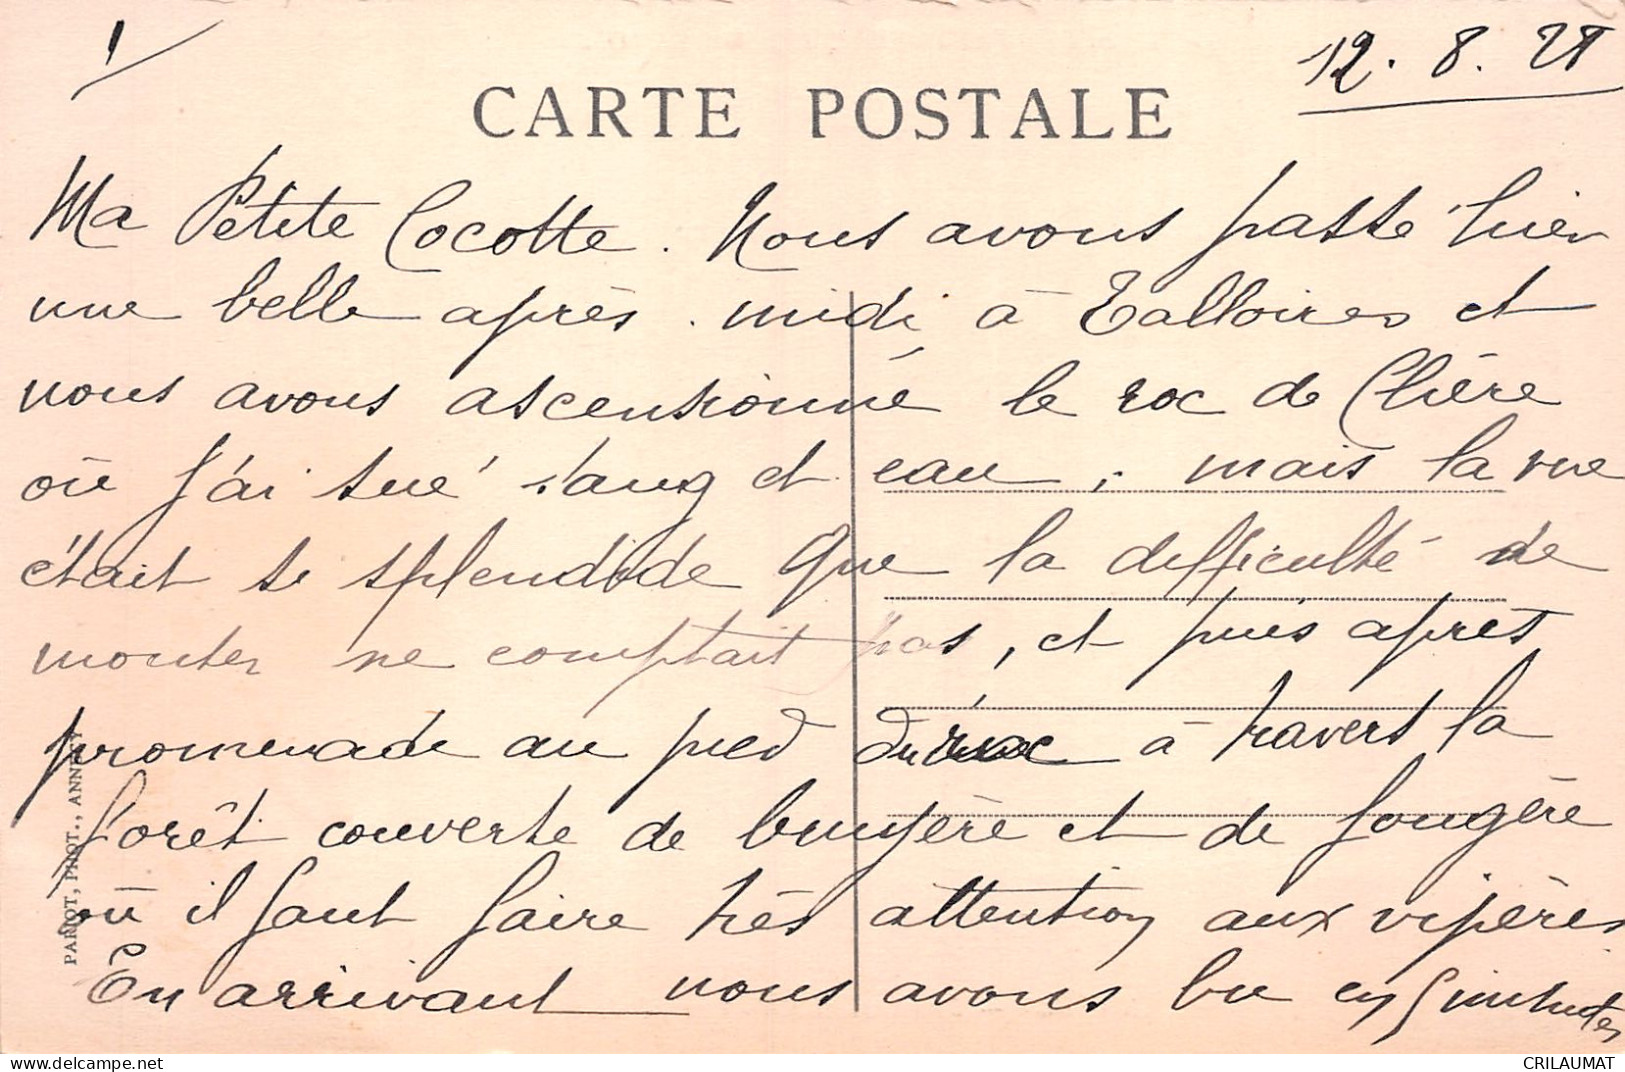 1/
12. 8. 28
CARTE POSTALE
Ma Petite Cocotte. Nous avons passé hier
une belle après-midi à Talloires et
nous avons ascensionné le roc de Chère
où j'ai sué sang et eau, mais la vue
était si splendide que la difficulté de
monter ne comptait pas, et puis après
promenade au pied du roc à travers la
forêt couverte de bruyère et de fougère
où il faut faire très attention aux vipères
En arrivant nous avons bu en 5 minutes
PARIOT, PHOT., ANNECY
CRILAUMAT